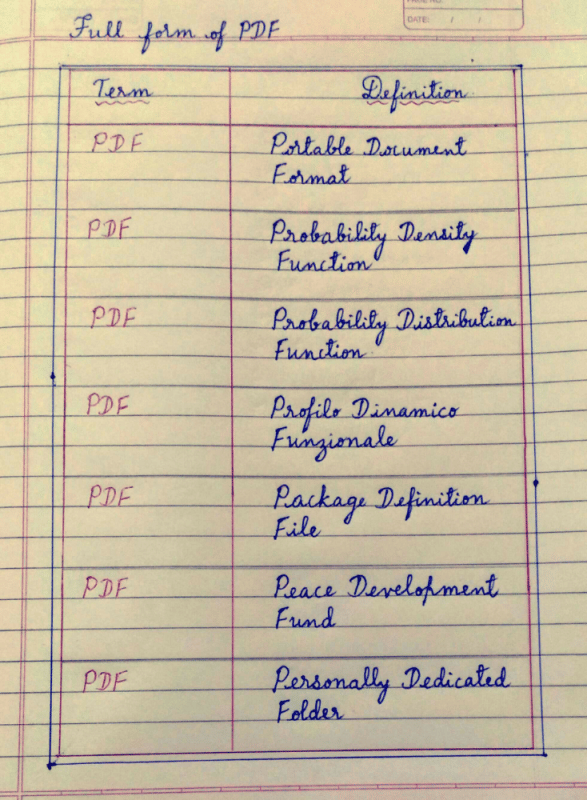 DATE: / /
Full form of PDF
Term Definition
PDF Portable Document
Format
PDF Probability Density
Function
PDF Probability Distribution
Function
PDF Profilo Dinamico
Funzionale
PDF Package Definition
File
PDF Peace Development
Fund
PDF Personally Dedicated
Folder